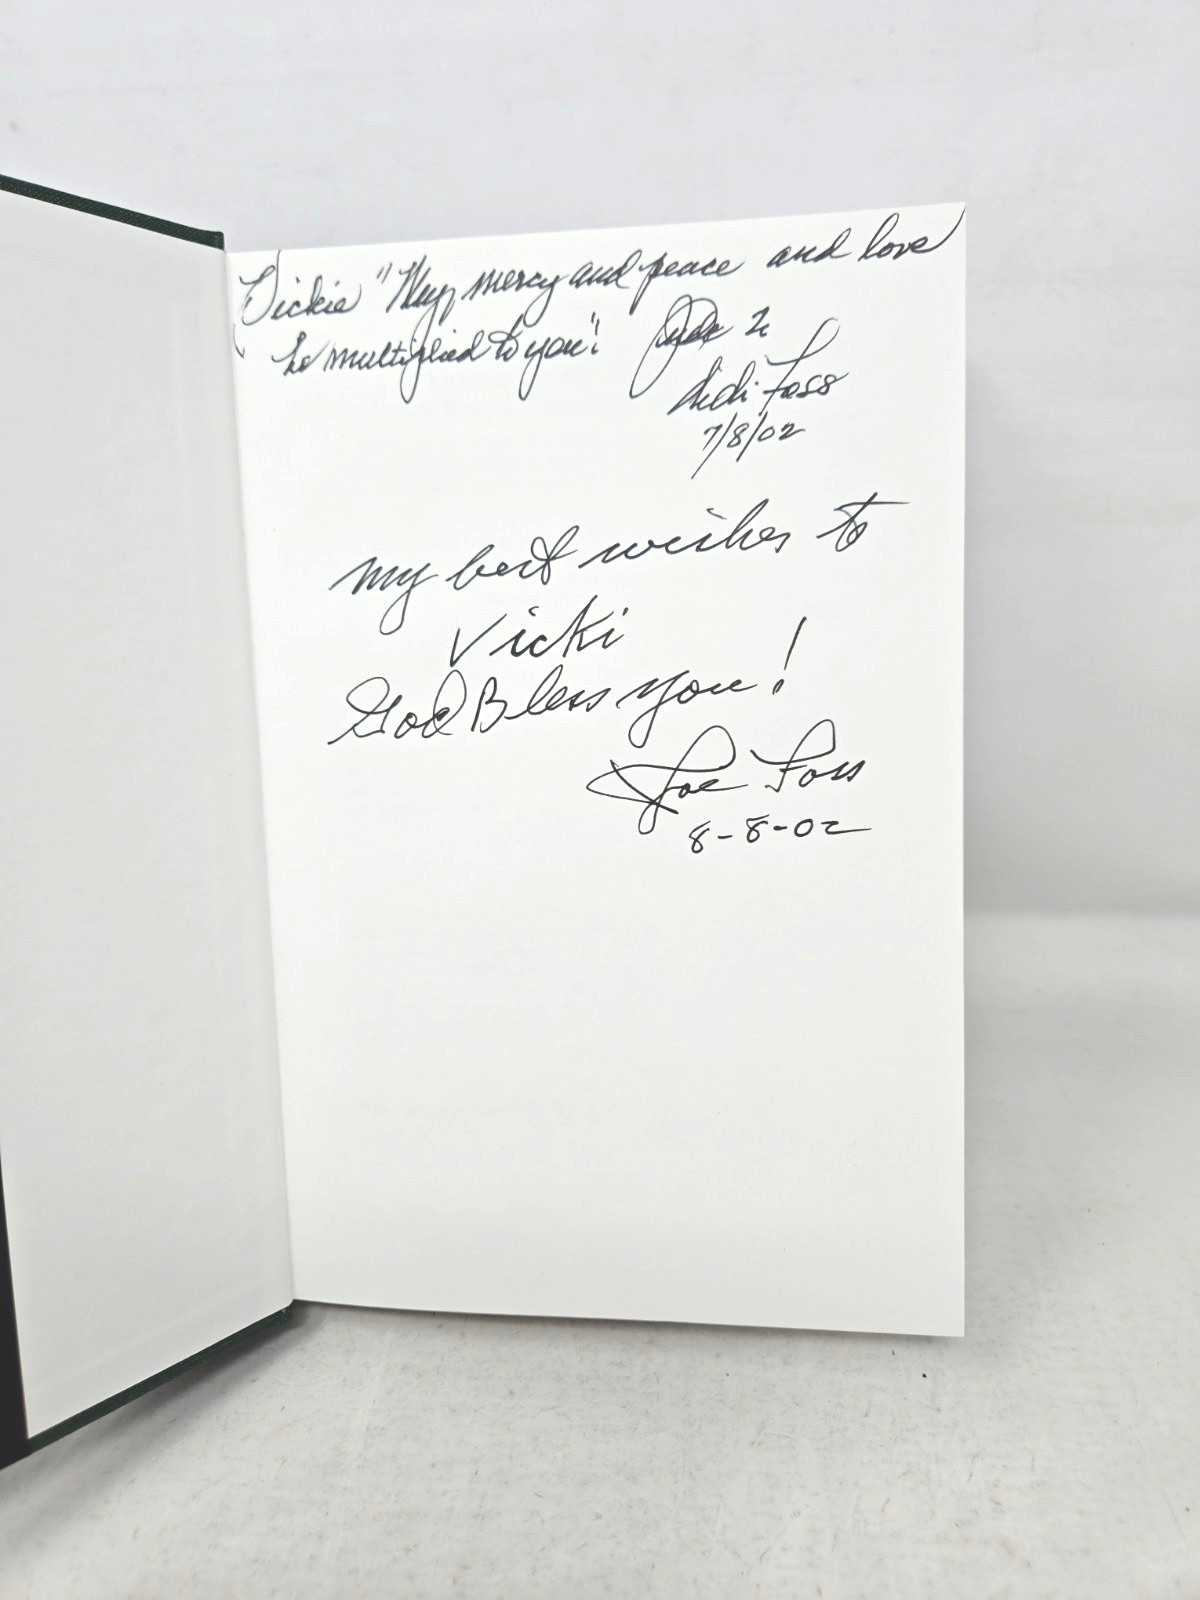 Vickie "May mercy and peace and love
be multiplied to you"! Jude 2
Didi Foss
7/8/02
My best wishes to
Vicki
God Bless you!
Joe Foss
8-8-02